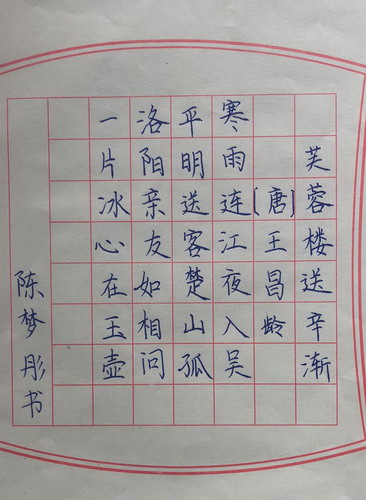 芙蓉楼送辛渐
〔唐〕王昌龄
寒雨连江夜入吴
平明送客楚山孤
洛阳亲友如相问
一片冰心在玉壶
陈梦彤书